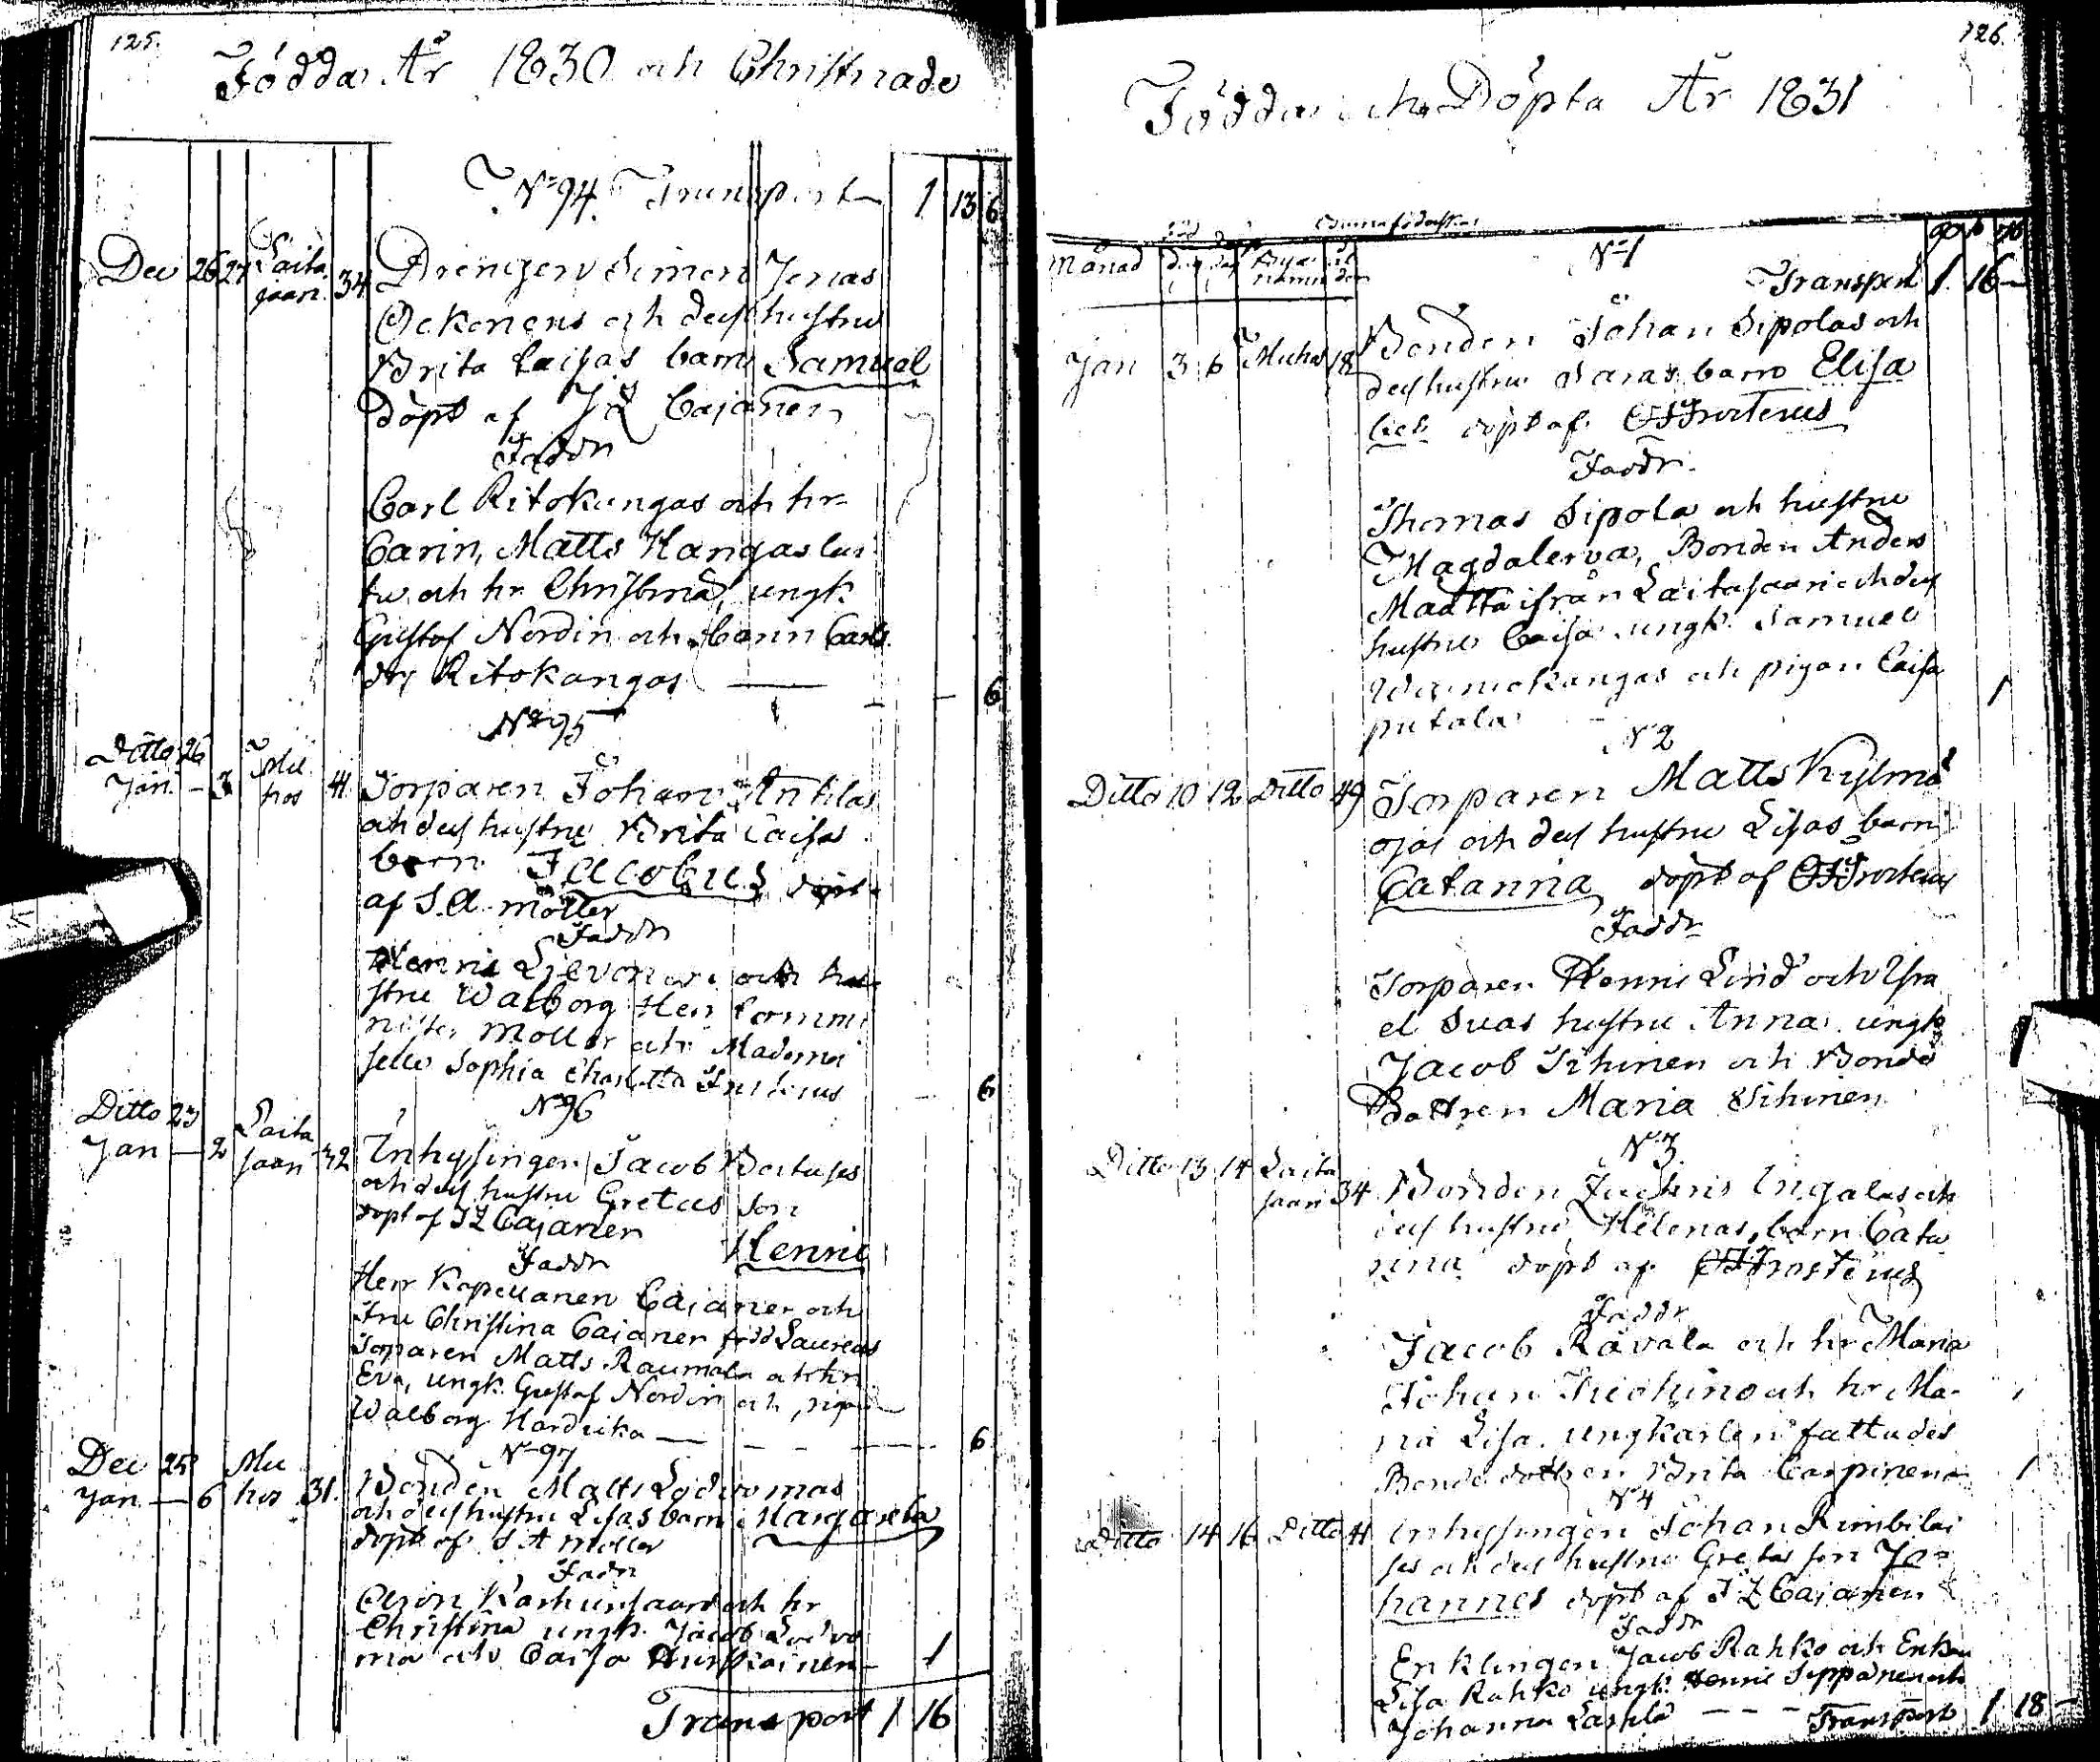 125.
Födda År 1830 och Christnade
No 94. Transport 1 13 6
Dec 26 27 Laita
saari 34 Drengen Simon Jonas
Ockonens och dess hustru
Brita Caisas barn Samuel
döpt af J L Cajanen
Faddr
Carl Ritokangas och hr
Carin, Matts Kangas lus
tu och hr Christina, ungk.
Gustaf Nordin och Carin Carls
dr Ritokangas — 6
No 95
Ditto 26 Mu
Jan. — 3 hos 41 Torparen Johan Antilas
och dess hustru Brita Caisas
barn Jacobus döpt
af S. A. Möller
Faddr
Henric Lievonen och hu
stru Walborg Herr Commi
nister Möller och Mademoi
selle Sophia Charlotta 6
No 96
Ditto 23 Laita
Jan — 2 saari 32 Inhysingen Jacob
och dess hustru Gretas son
döpt af J L Cajanen Henric
Faddr
Herr Kapellanen Cajanen och
Fru Christina Cajanen född Laureus
Torparen Matts Raumala och hr
Eva, ungk. Gustaf Nordin och pigan
Walborg Hardika — 6
No 97
Dec 25 Mu
Jan — 6 hos 31. Bonden Matts Lodvomas
och dess hustru Lisas barn Margareta
döpt af S A Möller
Faddr
Christina ungk. Jacob Lodvo
ma och Caisa Hurskainen — 1
Transport 1 16
126.
Födda och Döpta År 1831
Månad
No 1
Transport 1 16 —
Jan 3 6 Muhos 18 Bonden Johan Sipolas och
dess hustru Saras barn Elisa
bet döpt af
Faddr.
Thomas Sipola och hustru
Magdalena, Bonden Anders
Maatta ifrån Laitasaari och dess
hustru Caisa ungk. Samuel
och pigan Caisa
putala 1
No 2
Ditto 10 12 Ditto 49 Torparen Matts Kylmä
ojas och dess hustru Lisas barn
Catarina döpt af
Faddr
Torparen Henric Lind och Isra
el Suas hustru Anna ungk
Jacob Tihinen och Bonde
Dottren Maria Tihinen
No 3
Ditto 13 14 Laita
saari 34 Bonden Zachris Ingalas och
dess hustru Helenas barn Cata
rina döpt af
Faddr
Jacob Rävala och hr Maria
Johan och hr Ma-
ria Lisa. ungkarlen fattades
Bonde dottren Brita Carpinen 1
No 4
Ditto 14 16 Ditto 41 Inhysingen Johan Rimbilai
ses och dess hustru Gretas son Jo-
hannes döpt af J L Cajanen
Faddr
Enklingen Jacob Rahko och Enkan
Lisa Rahko ungk. Henric Seppänen och
Johanna — — — Transport 1 18 —